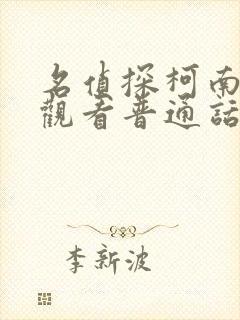 名偵探柯南
觀看普通話
李新波